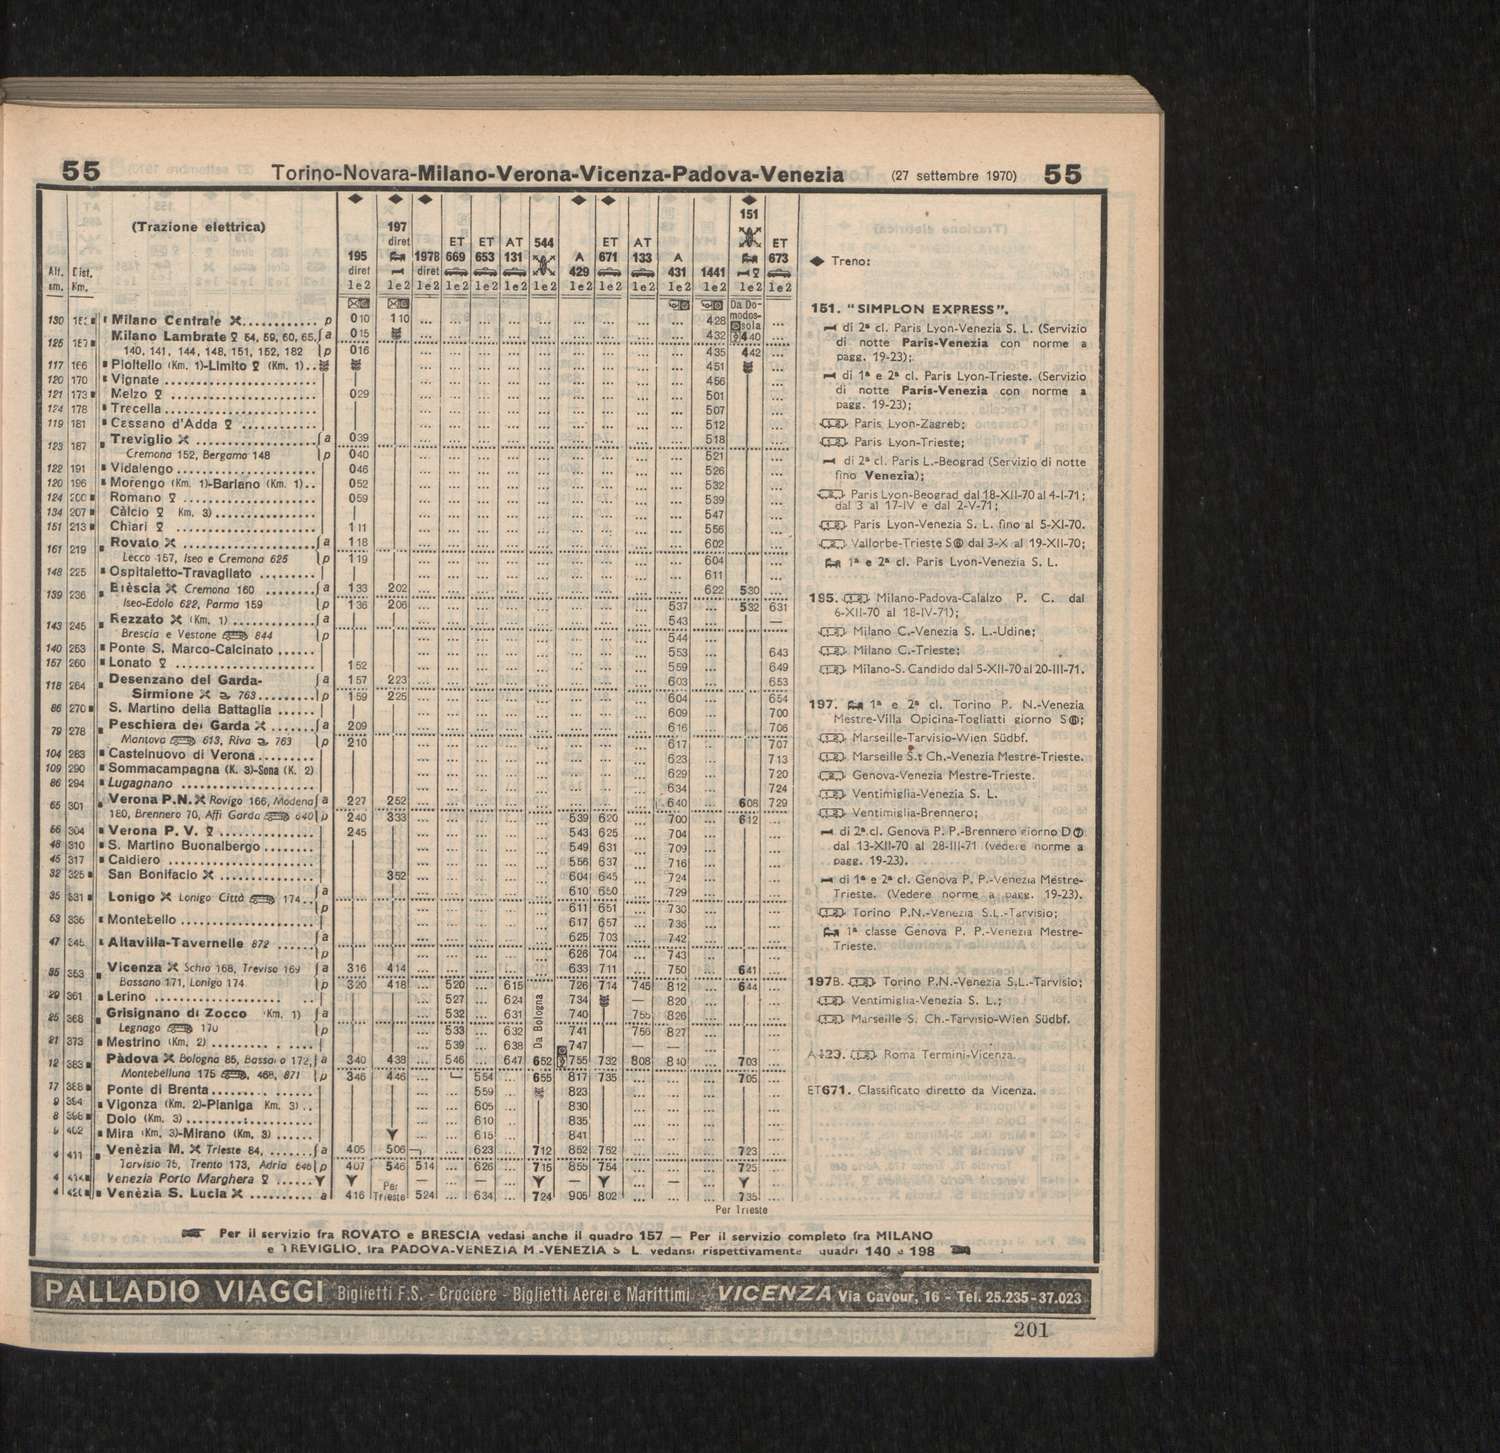 55 Torino-Novara-Milano-Verona-Vicenza-Padova-Venezia (27 settembre 1970) 55
(Trazione elettrica)
Alt. sm. Dist. Km.
195 diret 1e2
197 diret 1e2
1978 diret 1e2
ET 669 1e2
ET 653 1e2
AT 131 1e2
544 1e2
A 429 1e2
ET 671 1e2
AT 133 1e2
A 431 1e2
1441 1e2
151 1e2
ET 673 1e2
Da Domodossola
130 Milano Centrale p 010 110 428
125 Milano Lambrate 54, 59, 60, 65, a 015 432 440
140, 141, 144, 148, 151, 152, 182 p 016 435 442
117 166 Pioltello (Km. 1)-Limito (Km. 1) 451
120 170 Vignate 456
121 173 Melzo 029 501
124 178 Trecella 507
119 181 Cassano d'Adda 512
123 187 Treviglio a 039 518
Cremona 152, Bergamo 148 p 040 521
122 191 Vidalengo 046 526
120 196 Morengo (Km. 1)-Bariano (Km. 1) 052 532
124 200 Romano 059 539
134 207 Càlcio Km. 3) 547
151 213 Chiari 111 556
161 219 Rovato a 118 602
Lecco 157, Iseo e Cremona 625 p 119 604
148 225 Ospitaletto-Travagliato 611
139 236 Brèscia Cremona 160 a 133 202 622 530
Iseo-Edolo 622, Parma 159 p 136 206 537 532 631
143 245 Rezzato (Km. 1) a 543 —
Brescia e Vestone 844 p 544
140 253 Ponte S. Marco-Calcinato 553 643
157 260 Lonato 152 559 649
118 264 Desenzano del Garda- a 157 223 603 653
Sirmione 763 p 159 225 604 654
86 270 S. Martino della Battaglia 609 700
79 278 Peschiera del Garda a 209 616 706
Mantova 613, Riva 763 p 210 617 707
104 283 Castelnuovo di Verona 623 713
109 290 Sommacampagna (K. 3)-Sona (K. 2) 629 720
86 294 Lugagnano 634 724
65 301 Verona P.N. Rovigo 166, Modena a 227 252 640 608 729
180, Brennero 70, Affi Garda 640 p 240 333 539 620 700 612
66 304 Verona P. V. 245 543 625 704
48 310 S. Martino Buonalbergo 549 631 709
45 317 Caldiero 556 637 716
32 325 San Bonifacio 352 604 645 724
35 331 Lonigo Lonigo Città 174 a 610 650 729
p 611 651 730
53 336 Montebello 617 657 736
47 345 Altavilla-Tavernelle 872 a 625 703 742
p 626 704 743
353 Vicenza Schio 168, Treviso 169 a 316 414 633 711 750 641
Bassano 171, Lonigo 174 p 320 418 520 615 726 714 745 812 644
29 361 Lerino 527 624 734 — 820
25 368 Grisignano di Zocco Km. 1) a 532 631 740 755 826
Legnago 170 p 533 632 741 756 827
21 373 Mestrino (Km. 2) 539 638 747 — —
Da Bologna
12 383 Pàdova Bologna 85, Bassano 172, a 340 438 546 647 652 755 732 808 840 703
Montebelluna 175, 468, 871 p 346 446 554 655 817 735 705
17 388 Ponte di Brenta 559 823
9 394 Vigonza (Km. 2)-Pianiga Km. 3) 605 830
8 Dolo (Km. 3) 610 835
402 Mira (Km. 3)-Mirano (Km. 3) 615 841
4 411 Venèzia M. Trieste 84, a 405 506 623 712 852 752 723
Tarvisio 75, Trento 173, Adria 646 p 407 546 514 626 715 855 754 725
4 Venezia Porto Marghera — — — —
4 Venèzia S. Lucia a 416 Per Trieste 524 634 724 905 802 735
Per Trieste
Treno:
151. "SIMPLON EXPRESS".
di 2ª cl. Paris Lyon-Venezia S. L. (Servizio
di notte Paris-Venezia con norme a
pagg. 19-23);
di 1ª e 2ª cl. Paris Lyon-Trieste. (Servizio
di notte Paris-Venezia con norme a
pagg. 19-23);
Paris Lyon-Zagreb;
Paris Lyon-Trieste;
di 2ª cl. Paris L.-Beograd (Servizio di notte
fino Venezia);
Paris Lyon-Beograd dal 18-XII-70 al 4-I-71;
dal 3 al 17-IV e dal 2-V-71;
Paris Lyon-Venezia S. L. fino al 5-XI-70.
Vallorbe-Trieste S⑥ dal 3-X al 19-XII-70;
1ª e 2ª cl. Paris Lyon-Venezia S. L.
195. Milano-Padova-Calalzo P. C. dal
6-XII-70 al 18-IV-71);
Milano C.-Venezia S. L.-Udine;
Milano C.-Trieste;
Milano-S. Candido dal 5-XII-70 al 20-III-71.
197. 1ª e 2ª cl. Torino P. N.-Venezia
Mestre-Villa Opicina-Togliatti giorno S⑥;
Marseille-Tarvisio-Wien Südbf.
Marseille S.t Ch.-Venezia Mestre-Trieste.
Genova-Venezia Mestre-Trieste.
Ventimiglia-Venezia S. L.
Ventimiglia-Brennero;
di 2ª cl. Genova P. P.-Brennero giorno D⑦
dal 13-XII-70 al 28-III-71 (vedere norme a
pagg. 19-23).
di 1ª e 2ª cl. Genova P. P.-Venezia Mestre-
Trieste. (Vedere norme a pagg. 19-23).
Torino P.N.-Venezia S.L.-Tarvisio;
1ª classe Genova P. P.-Venezia Mestre-
Trieste.
197B. Torino P.N.-Venezia S.L.-Tarvisio;
Ventimiglia-Venezia S. L.;
Marseille S. Ch.-Tarvisio-Wien Südbf.
A429. Roma Termini-Vicenza.
ET671. Classificato diretto da Vicenza.
Per il servizio fra ROVATO e BRESCIA vedasi anche il quadro 157 — Per il servizio completo fra MILANO
e TREVIGLIO, fra PADOVA-VENEZIA M.-VENEZIA S. L. vedansi rispettivamente quadri 140 e 198
PALLADIO VIAGGI Biglietti F.S. - Crociere - Biglietti Aerei e Marittimi - VICENZA Via Cavour, 16 - Tel. 25.235-37.023
201